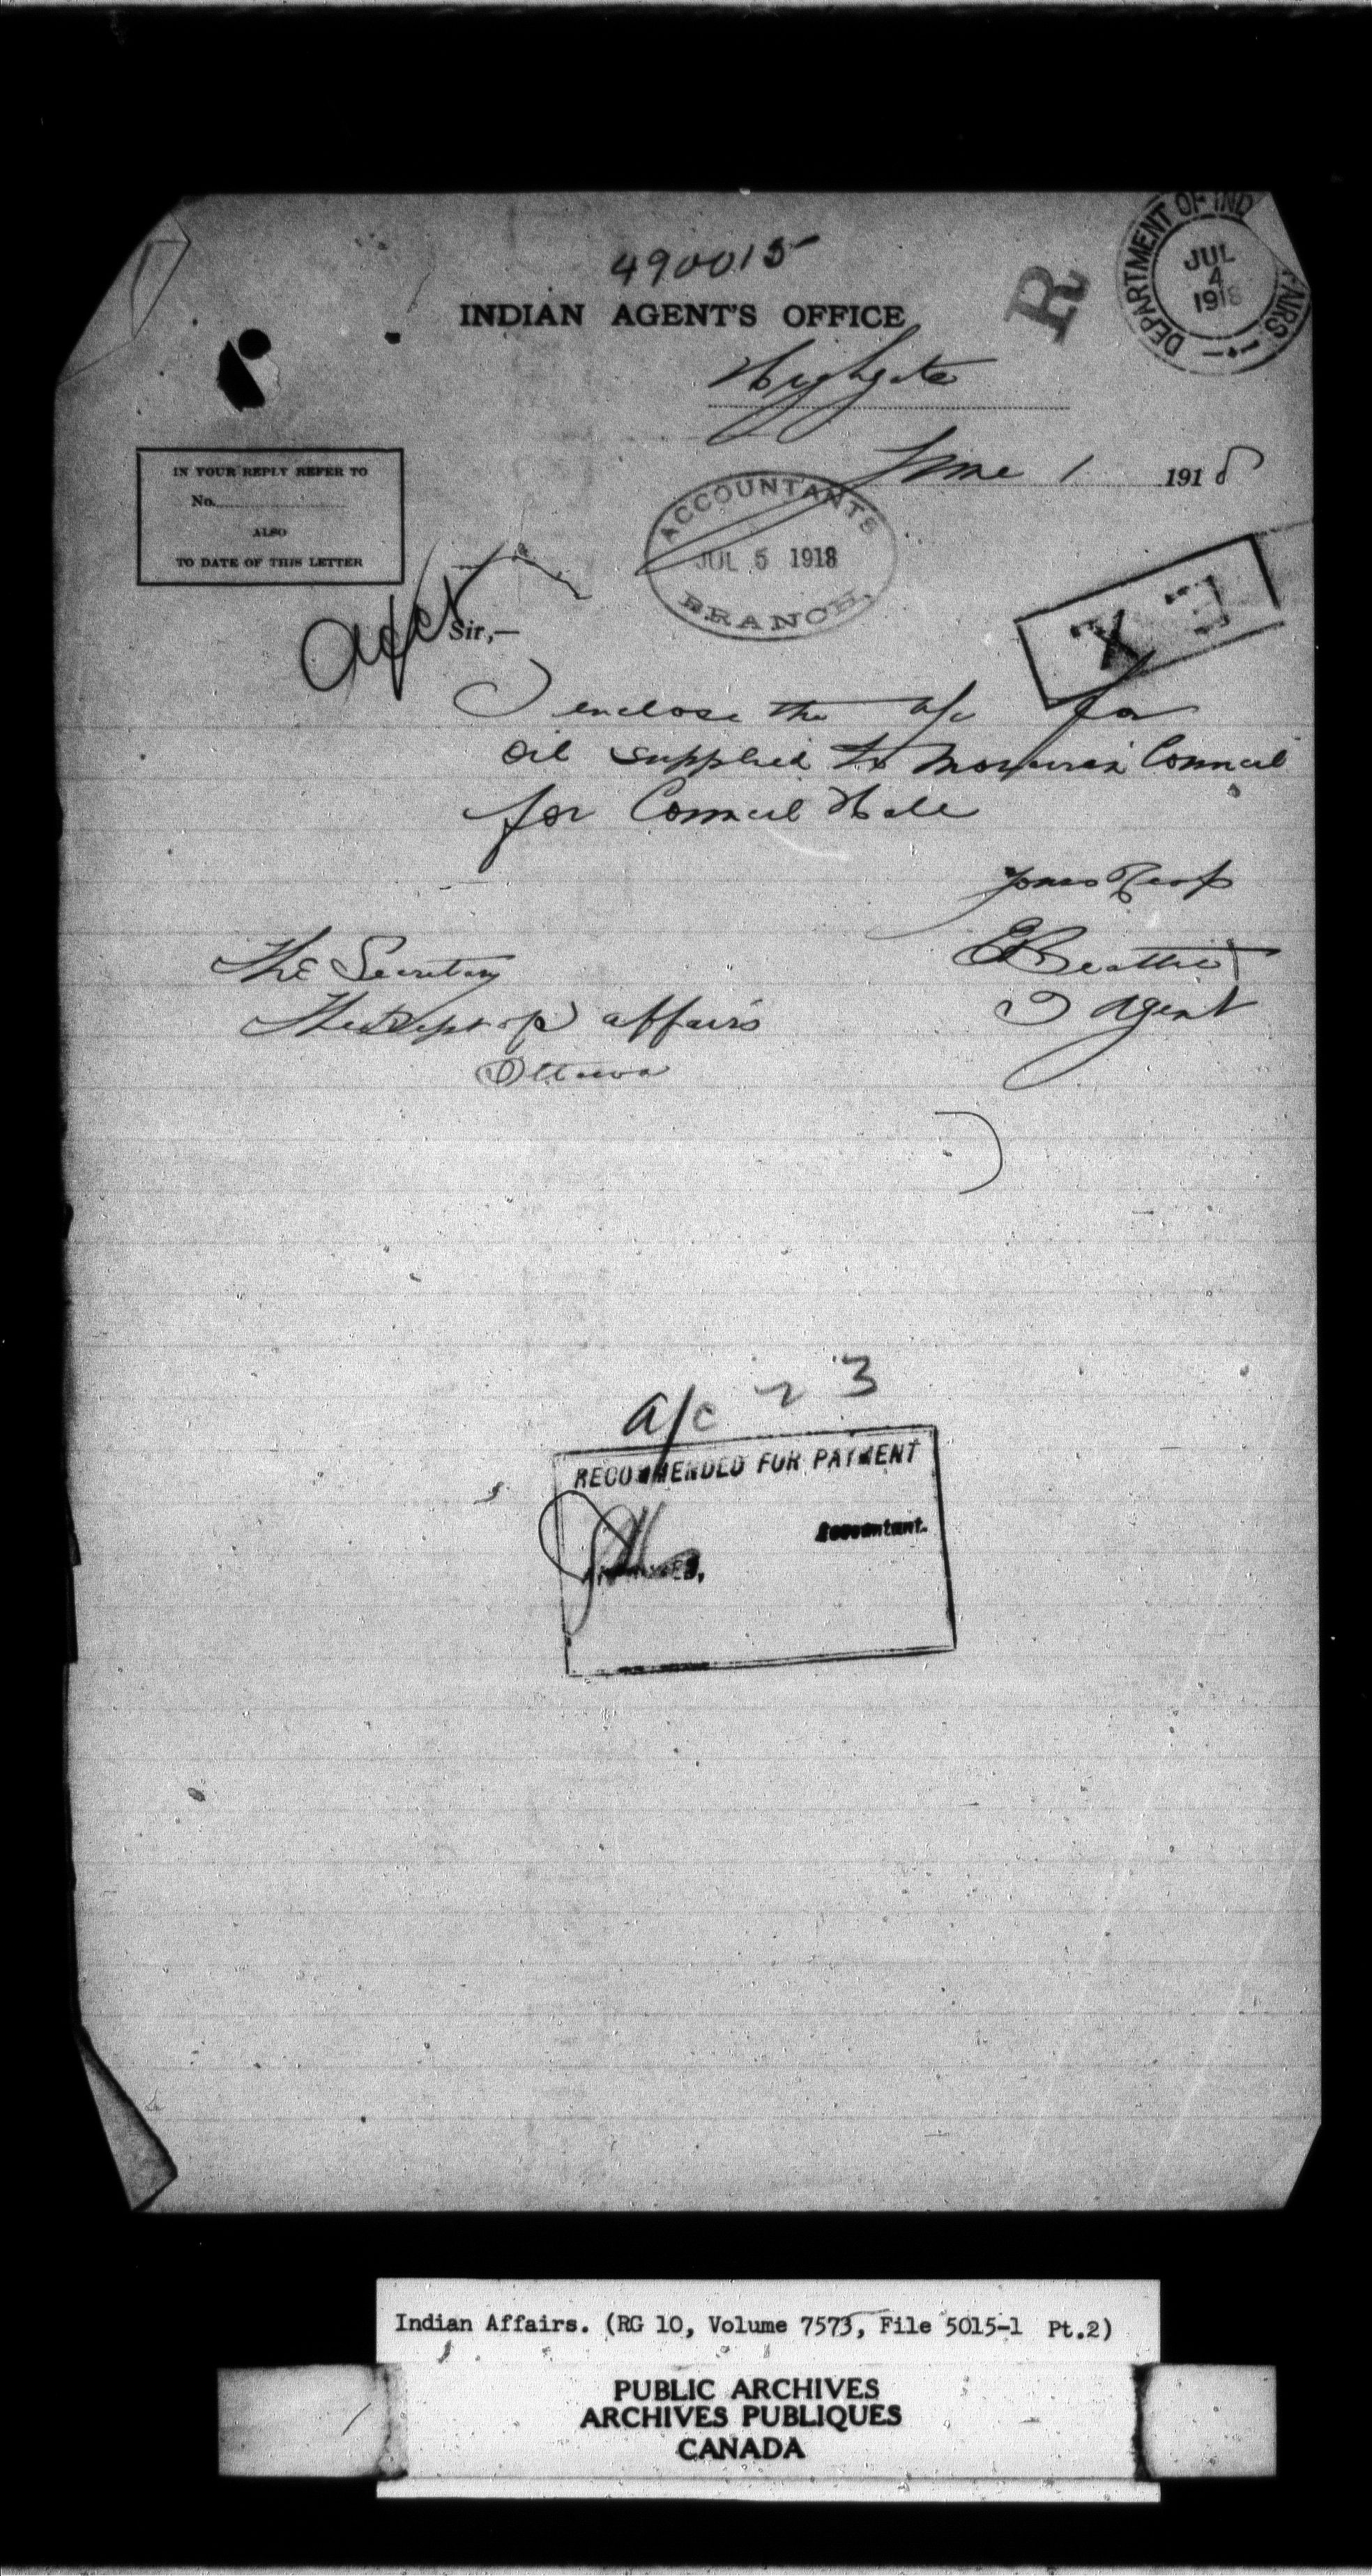 490015
INDIAN AGENT'S OFFICE
R
DEPARTMENT OF IND
AFFAIRS
JUL
4
1918
Highgate
June 1 1918
IN YOUR REPLY REFER TO
No.
ALSO
TO DATE OF THIS LETTER
ACCOUNTANTS
JUL 5 1918
BRANCH.
Sir,—
I enclose the a/c for
oil supplied to Moravian Council
for Council Hall
Yours Resp
Beattie
I Agent
The Secretary
The Dept of affairs
Ottawa
a/c 23
RECOMMENDED FOR PAYMENT
Accountant.
Indian Affairs. (RG 10, Volume 7573, File 5015-1 Pt.2)
PUBLIC ARCHIVES
ARCHIVES PUBLIQUES
CANADA